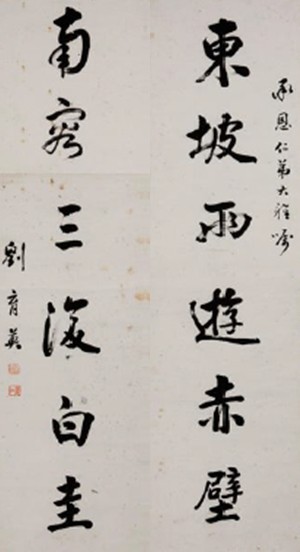 承恩仁弟大雅囑
東坡兩遊赤壁
南容三復白圭
劉育英